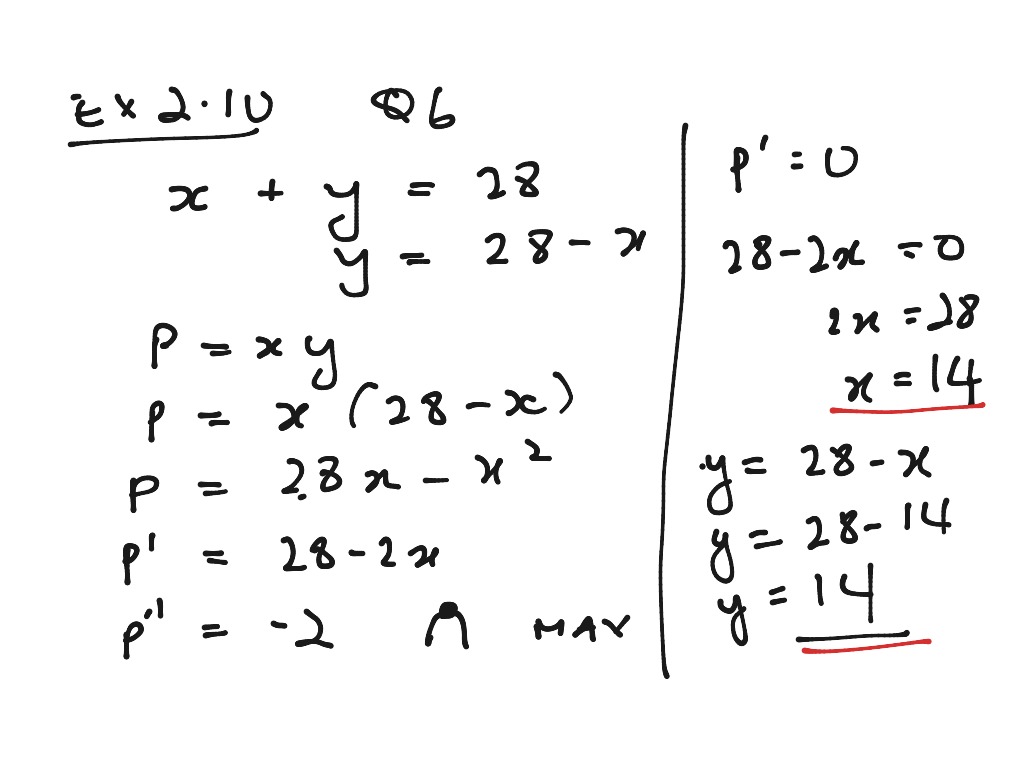 Ex 2.10 Q6
x + y = 28
y = 28 - x
P = x y
P = x (28 - x)
P = 28 x - x²
P' = 28 - 2x
P'' = -2 MAX
P' = 0
28 - 2x = 0
2x = 28
x = 14
y = 28 - x
y = 28 - 14
y = 14